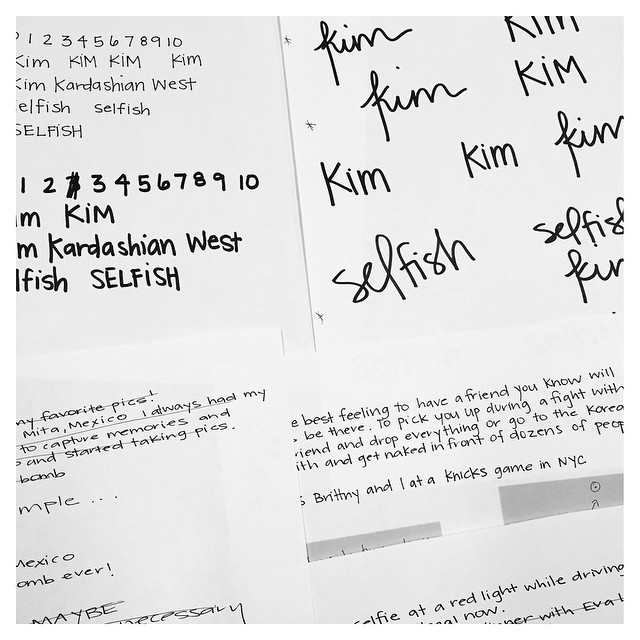 1 2 3 4 5 6 7 8 9 10
Kim KiM KiM Kim
Kim Kardashian West
elfish selfish
SELFISH
1 2 3 4 5 6 7 8 9 10
im KiM
m Kardashian West
lfish SELFiSH
kim KiM
kim KiM
Kim Kim kim
selfish selfish
kim
my favorite pics!
Mita, Mexico I always had my
to capture memories and
and started taking pics.
bomb
mple ...
Mexico
omb ever!
MAYBE necessary
e best feeling to have a friend you know will
be there. To pick you up during a fight with
riend and drop everything or go to the Korea
ith and get naked in front of dozens of peop
s Brittny and I at a Knicks game in NYC
selfie at a red light while driving
now.
with Eva L